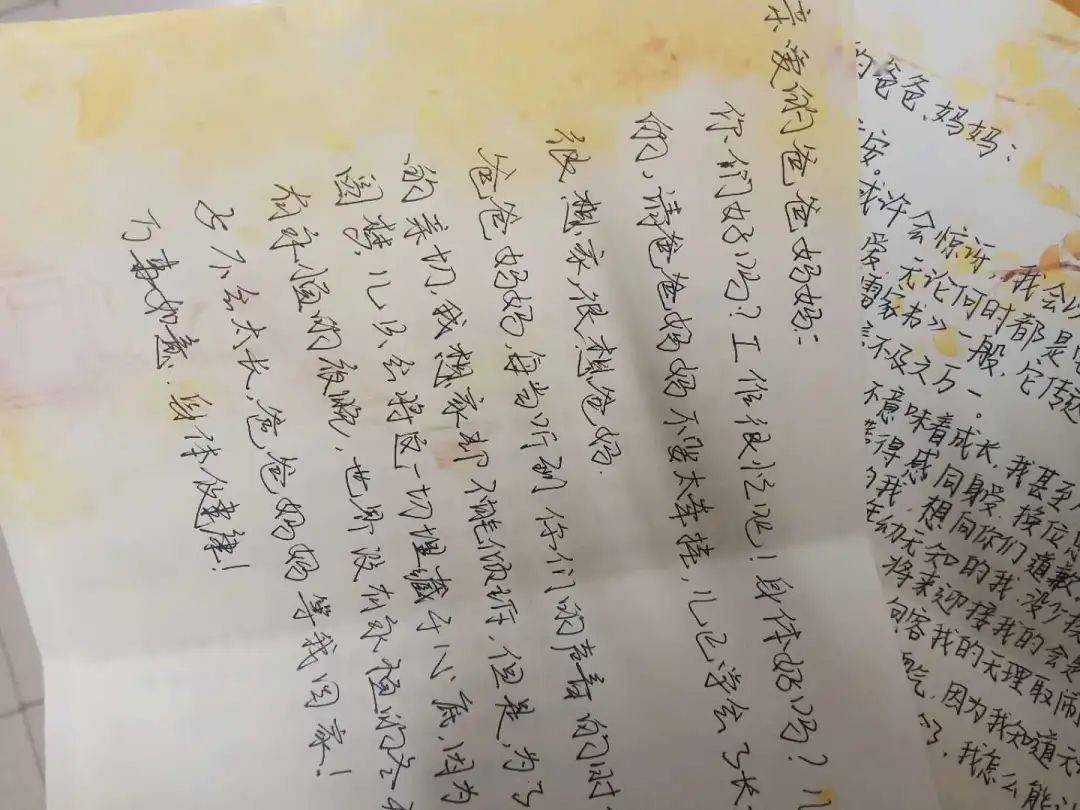 亲爱的爸爸妈妈:
你们好吗?工作很忙吧!身体好吗?儿
的,请爸爸妈妈不要太牵挂,儿已学会了长
很想家,很想爸妈.
爸爸妈妈,每当听到你们的声音的同时
的亲切,我想家却不能倾诉,但是,为了
圆梦,儿只会将这一切埋藏于心底,因为
有永恒的夜晚,世界没有永恒的冬
子不会太长,爸爸妈妈等我回家!
万事如意.身体健康!
的爸爸、妈妈:
安。
或许会惊讶,我会以
爱,无论何时都是
雷家书》一般,它传达
不及之万一。
不意味着成长,我甚至
得感同身受,换位思
的我,想向你们道歉,
幼无知的我,没少接
将来迎接我的会是
容我的无理取闹
气,因为我知道无
了,我怎么能